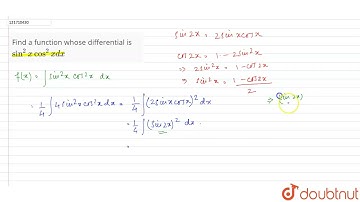 121710430
Find a function whose differential is
sin² x cos² xdx
f(x) = ∫ sin²x cos²x dx
= 1/4 ∫ 4 sin²x cos²x dx = 1/4 ∫ (2 sin x cos x)² dx
= 1/4 ∫ (sin 2x)² dx.
=
sin 2x = 2 sin x cos x
cos 2x = 1 - 2 sin²x
⇒ 2 sin²x = 1 - cos 2x
⇒ sin²x = 1 - cos 2x / 2
⇒ (sin 2x)
doubtnut